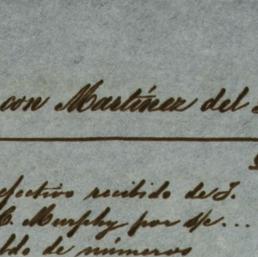 con Martinez del
efectivo recibido de J.
C. Murphy por d/c...
ldo de números